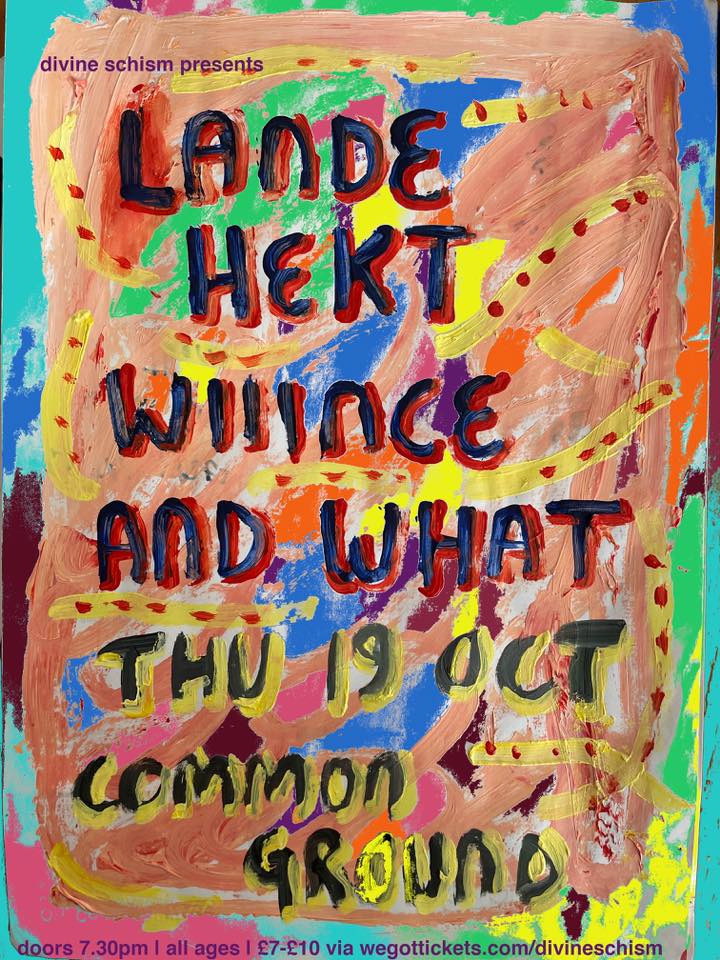 divine schism presents
LANDE
HEKT
WIIINCE
AND WHAT
THU 19 OCT
COMMON
GROUND
doors 7.30pm | all ages | £7-£10 via wegottickets.com/divineschism